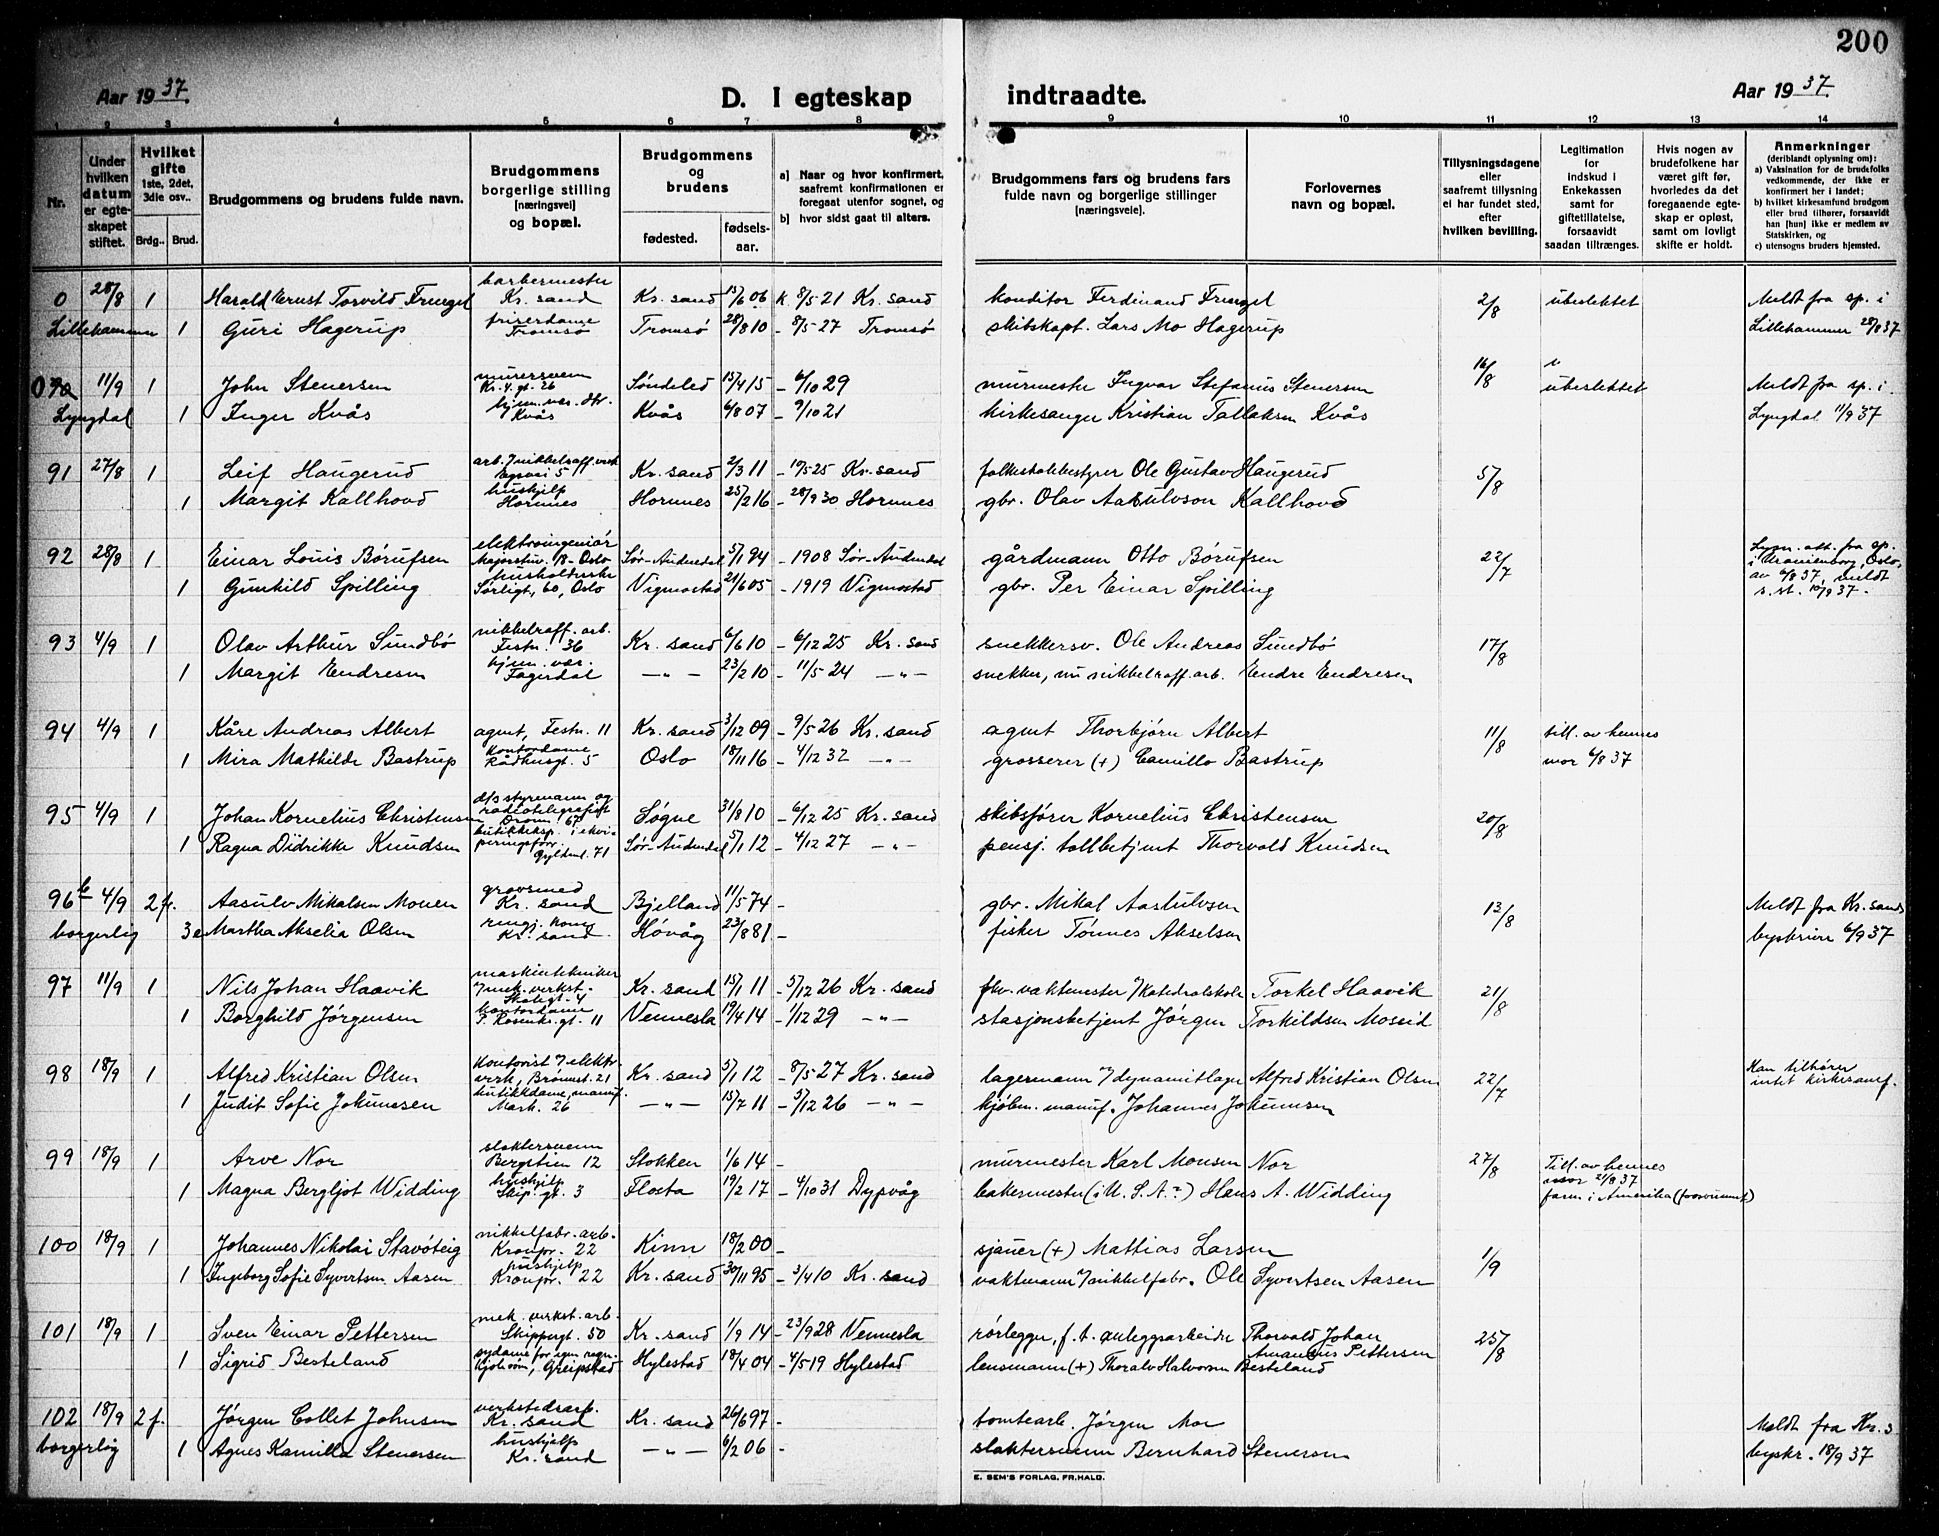 200
Aar 1937.
D. I egteskap indtraadte.
Aar 1937.
1 2 3 4 5 6 7 8 9 10 11 12 13 14
Nr.
Under hvilken datum er egteskapet stiftet.
Hvilket gifte 1ste, 2det, 3die osv..
Brdg.. Brud.
Brudgommens og brudens fulde navn.
Brudgommens borgerlige stilling [næringsvei] og bopæl.
Brudgommens og brudens
fødested. fødsels-aar.
a) Naar og hvor konfirmert, saafremt konfirmationen er foregaat utenfor sognet, og
b) hvor sidst gaat til alters.
Brudgommens fars og brudens fars fulde navn og borgerlige stillinger [næringsveie].
Forlovernes navn og bopæl.
Tillysningsdagene eller saafremt tillysning ei har fundet sted, efter hvilken bevilling.
Legitimation for indskud i Enkekassen samt for giftetillatelse, forsaavidt saadan tiltrænges.
Hvis nogen av brudefolkene har været gift før, hvorledes da det foregaaende egteskap er opløst, samt om lovligt skifte er holdt.
Anmerkninger (deriblandt oplysning om):
a) Vaksination for de brudefolks vedkommende, der ikke er konfirmert her i landet;
b) hvilket kirkesamfund brudgom eller brud tilhører, forsaavidt han [hun] ikke er medlem av Statskirken, og
c) utensogns bruders hjemsted.
0 28/8 1 Harald Ernst Torvild Frengel barbermester Kr. sand Kr. sand 15/6 06 K 8/5 21 Kr. sand konditor Ferdinand Frengel 2/8 ubeslektet Meldt fra sp. i
Lillehammer 1 Guri Hagerup friserdame Tromsø Tromsø 28/8 10 - 8/5 27 Tromsø skibskapt. Lars Mo Hagerup Lillehammer 28/8 37
11/9 1 John Stenersen murersvenn Kr. 4. gt. 26 Søndeled 15/4 15 - 6/10 29 murmester Ingvar Stefanus Stenersen 16/8 ubeslektet Meldt fra sp. i
Lyngdal 1 Inger Kvås hjem. vær. dtr. Kvås Kvås 6/8 07 - 9/10 21 kirkesanger Kristian Tallaksen Kvås Lyngdal 11/9 37
91 27/8 1 Leif Haugerud arb. v/nikkelraff. verk 5 Kr. sand 2/3 11 - 10/5 25 Kr. sand folkeskolebestyrer Ole Gustav Haugerud 5/8
1 Margit Kallhovd hushjelp Hornnes Hornnes 25/2 16 - 28/9 30 Hornnes gbr. Olav Aasulvson Kallhovd
92 28/8 1 Einar Louis Børufsen elektroingeniør Majorstuv. 18 - Oslo Sør-Audnedal 5/1 94 - 1908 Sør-Audnedal gårdmann Otto Børufsen 22/7 Lysn. att. fra sp. i Uranienborg, Oslo, av 6/8 37, meldt s. st. 10/9 37.
1 Gunhild Spilling husholderske Sørligt. 60, Oslo Vigmostad 21/6 05 - 1919 Vigmostad gbr. Per Einar Spilling
93 4/9 1 Olav Arthur Sundbø nikkelraff. arb. Festn. 36 Kr. sand 6/6 10 - 6/12 25 Kr. sand snekkersv. Ole Andreas Sundbø 17/8
1 Margit Endresen hjem. vær. Fagerdal -„- 23/2 10 - 11/5 24 -„- snekker, nu nikkelraff. arb. Endre Endresen
94 4/9 1 Kåre Andreas Albert agent, Festn. 11 Kr. sand 3/12 09 - 9/5 26 Kr. sand agent Thorbjørn Albert 11/8 till. av hennes
1 Mira Mathilde Bastrup kontordame Rådhusgt. 5 Oslo 18/11 16 - 4/12 32 -„- grosserer (+) Camillo Bastrup mor 6/8 37
95 4/9 1 Johan Kornelius Christensen d/s styrmann og radiotelegrafist Dronn. 67 Søgne 31/8 10 - 6/12 25 Kr. sand skibsfører Kornelius Christensen 20/8
1 Ragna Didrikke Knudsen butikkeksp. i ekviperingsforr. Gyldenl. 71 Sør-Audnedal 5/1 12 - 4/12 27 -„- pensj. tollbetjent Thorvald Knudsen
96 b 4/9 2 f. Aasulv Mikalsen Monen grovsmed Kr. sand Bjelland 11/5 74 - gbr. Mikal Aasulvsen 13/8 Meldt fra Kr.sands
borgerlig 3e Martha Akselia Olsen rengj. kone Kr. sand Høvåg 23/8 81 - fisker Tønnes Akselsen byskriver 6/9 37
97 11/9 1 Nils Johan Haavik maskintekniker v/mek. verkst. Skoligt. 4 Kr. sand 15/1 11 - 5/12 26 Kr. sand fhv. vaktmester v/Katedralskole Torkel Haavik 21/8
1 Borghild Jørgensen kontordame P. Kosenkr. gt. 11 Vennesla 19/4 14 - 1/12 29 -„- stasjonsbetjent Jørgen Torkildsen Moseid
98 18/9 1 Alfred Kristian Olsen kontorist v/elektr. verk, Brønnst. 21 Kr. sand 5/1 12 - 8/5 27 Kr. sand lagermann v/dynamitlager Alfred Kristian Olsen 22/7 Kan tilhører intet kirkesamf.
1 Judit Sofie Jokumsen butikkdame, manuf. Mark. 26 -„- 15/7 11 - 5/12 26 -„- kjøbm. manuf. Johannes Jokumsen
99 18/9 1 Arve Nor slaktersvenn Bergstien 12 Stokken 1/6 14 - murmester Karl Monsen Nor 27/8 Till. av hennes
1 Magna Bergljot Widding hushjelp Skip. gt. 3 Flosta 19/2 17 - 4/10 31 Dypvåg bakermester (i U.S.A.?) Hans A. Widding mor 2/8 37 faren i Amerika (forsvunnet)
100 18/9 1 Johannes Nikolai Stavøteig nikkelfabr. arb. Kronpr. 22 Kinn 18/2 00 - sjauer (+) Mattias Larsen 1/9
1 Ingeborg Sofie Syvertsen Aasen hushjelp Kronpr. 22 Kr. sand 30/11 95 - 3/4 10 Kr. sand vaktmann v/nikkelfabr. Ole Syvertsen Aasen
101 18/9 1 Sven Einar Pettersen mek. verkst. arb. Skippergt. 50 Kr. sand 1/9 14 - 23/9 28 Vennesla rørlegger, f. t. anleggsarbeider Thorvald Johan Amandus Pettersen 25/8
1 Sigrid Besteland sydame for egen regn. Kjolesøm, Greipstad Hylestad 18/4 04 - 4/5 19 Hylestad lensmann (+) Thoralv Halvorsen Besteland
102 18/9 2 f. Jørgen Collet Johnsen verkstedsarb. Kr. sand Kr. sand 26/6 97 - tomtearb. Jørgen Moe Meldt fra Kr.s
borgerlig 1 Agnes Kamilla Stenersen hushjelp Kr. sand -„- 6/2 06 - slaktersvenn Bernhard Stenersen byskr. 18/9 37
E. SEM'S FORLAG, FR.HALD.